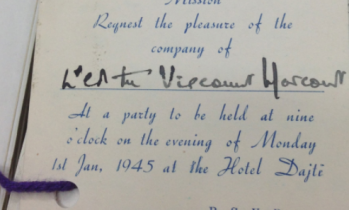 Mission
Request the pleasure of the
company of
Viscount Harcourt
At a party to be held at nine
o'clock on the evening of Monday
1st Jan, 1945 at the Hotel Dajte